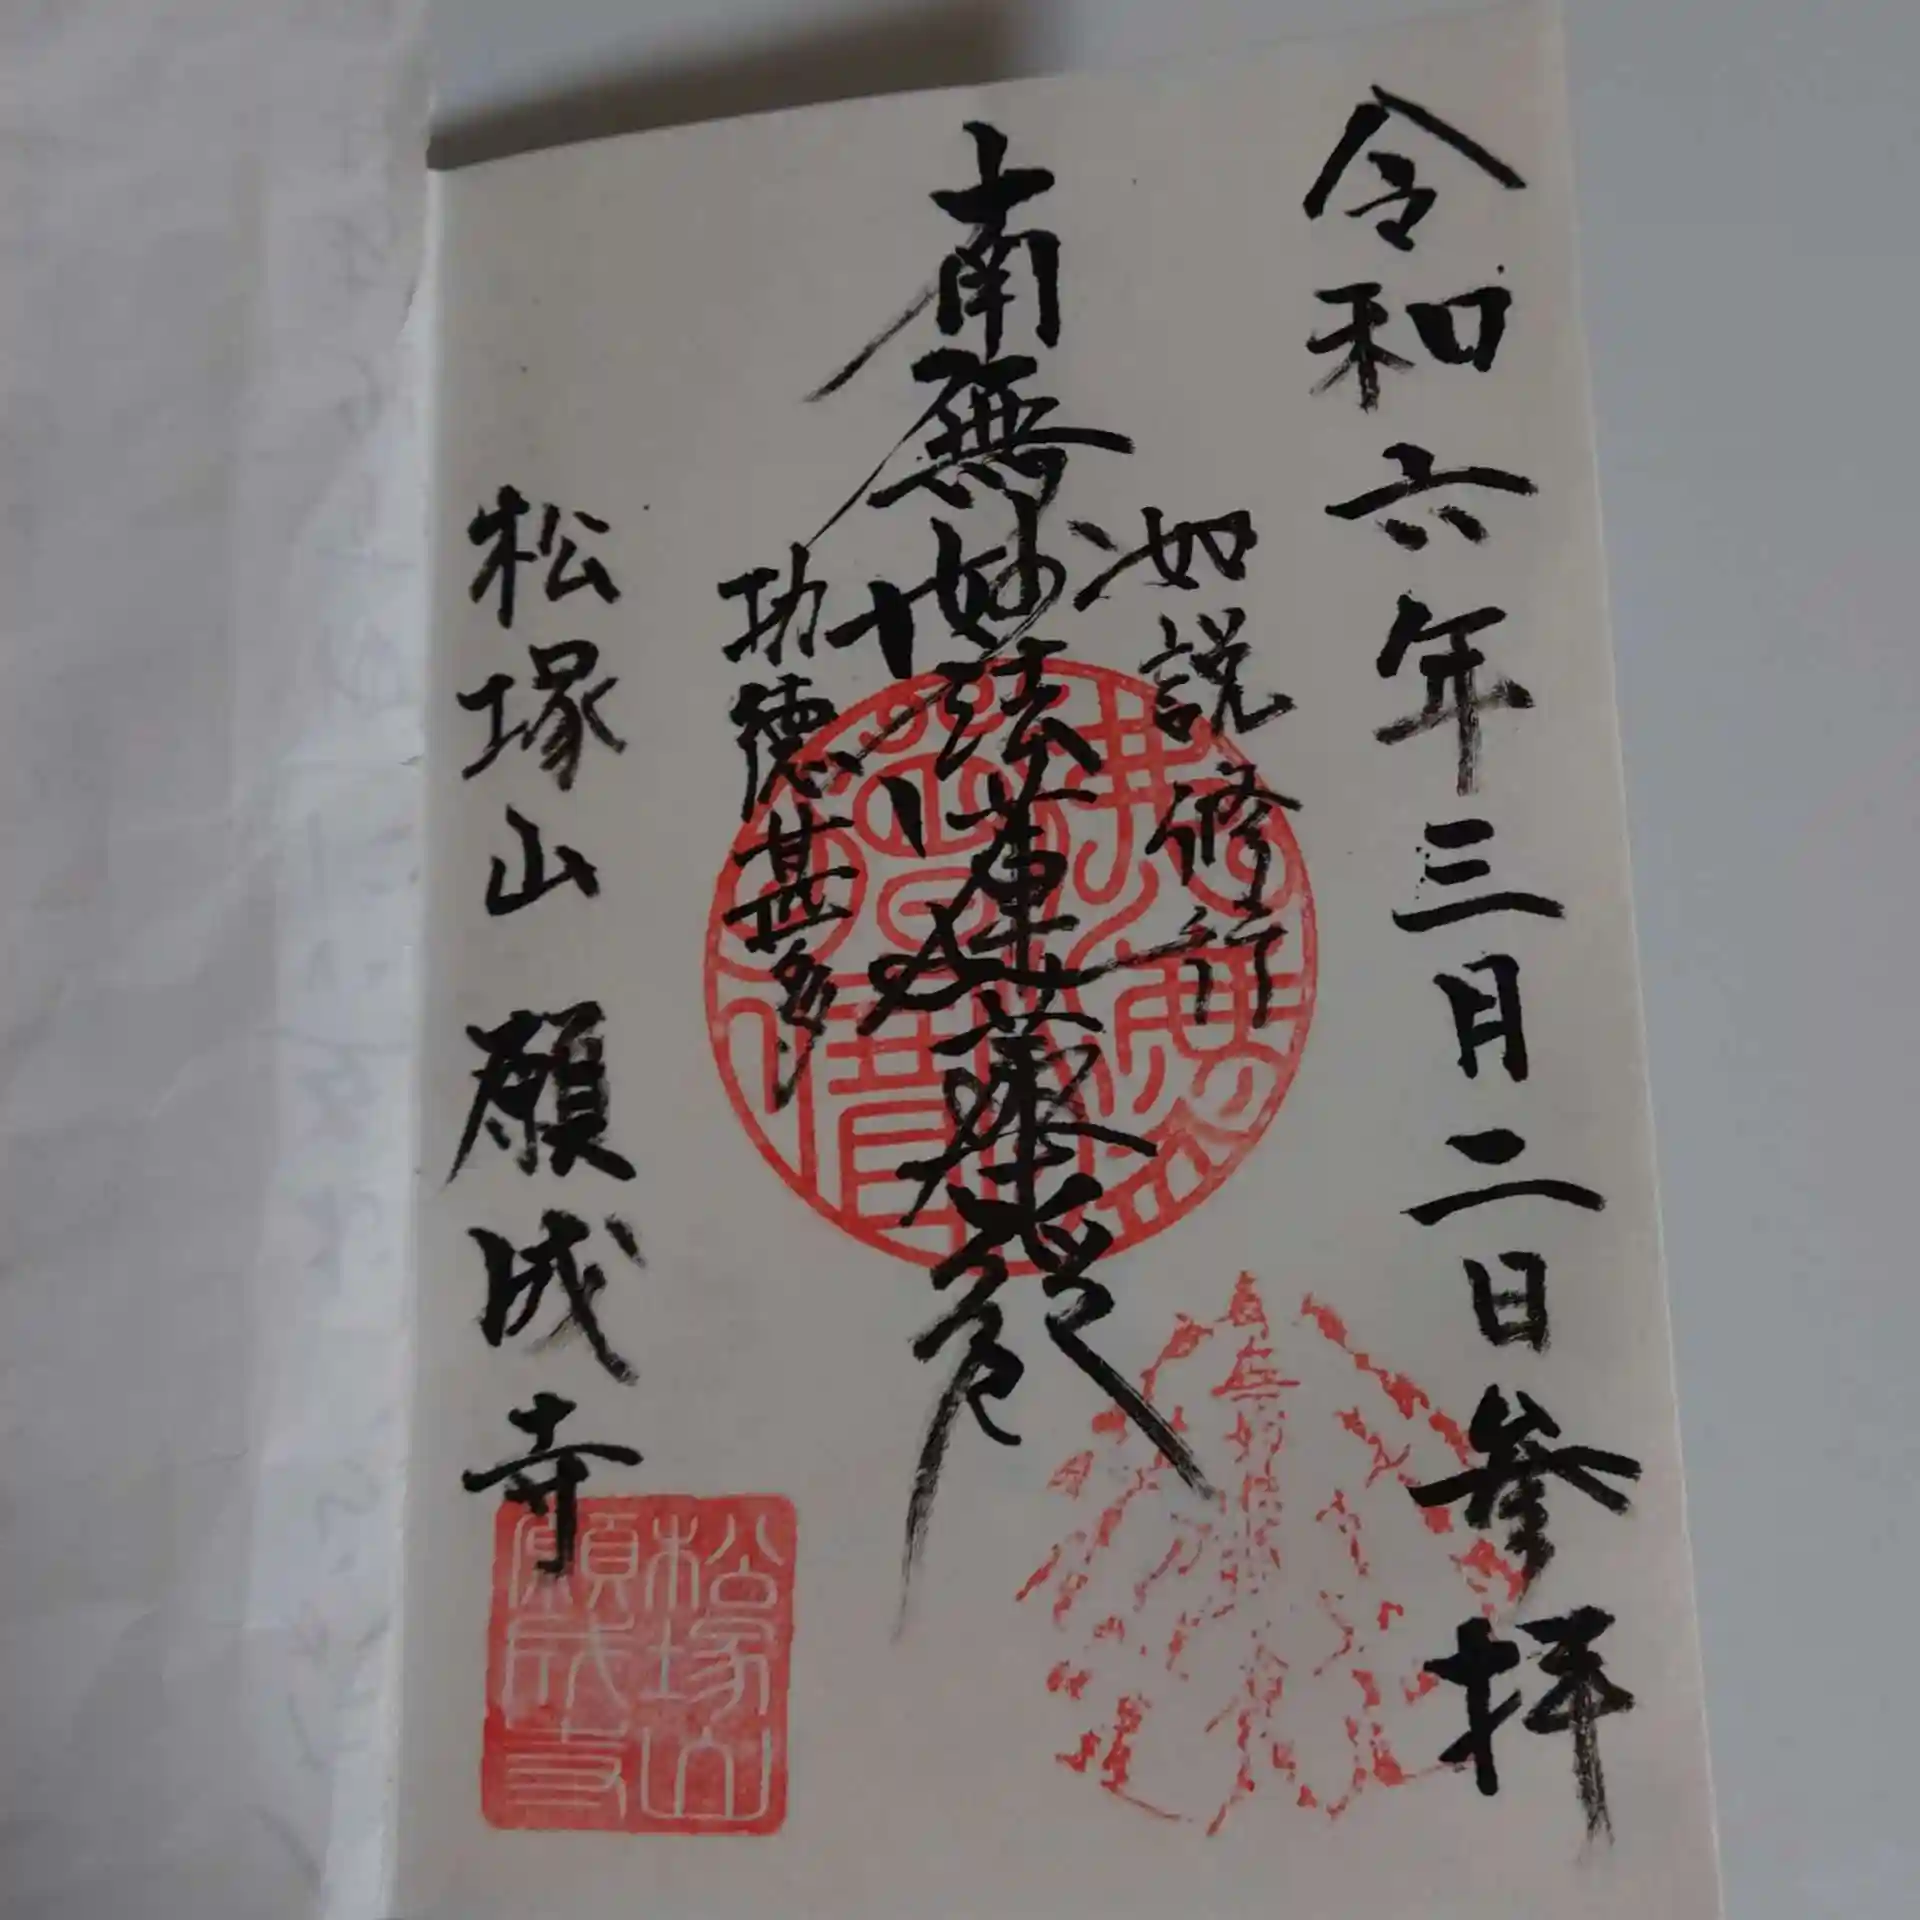 令和六年三月二日参拝
如説修行
南無妙法蓮華経
功徳甚多
松塚山 願成寺
松塚山
願成寺